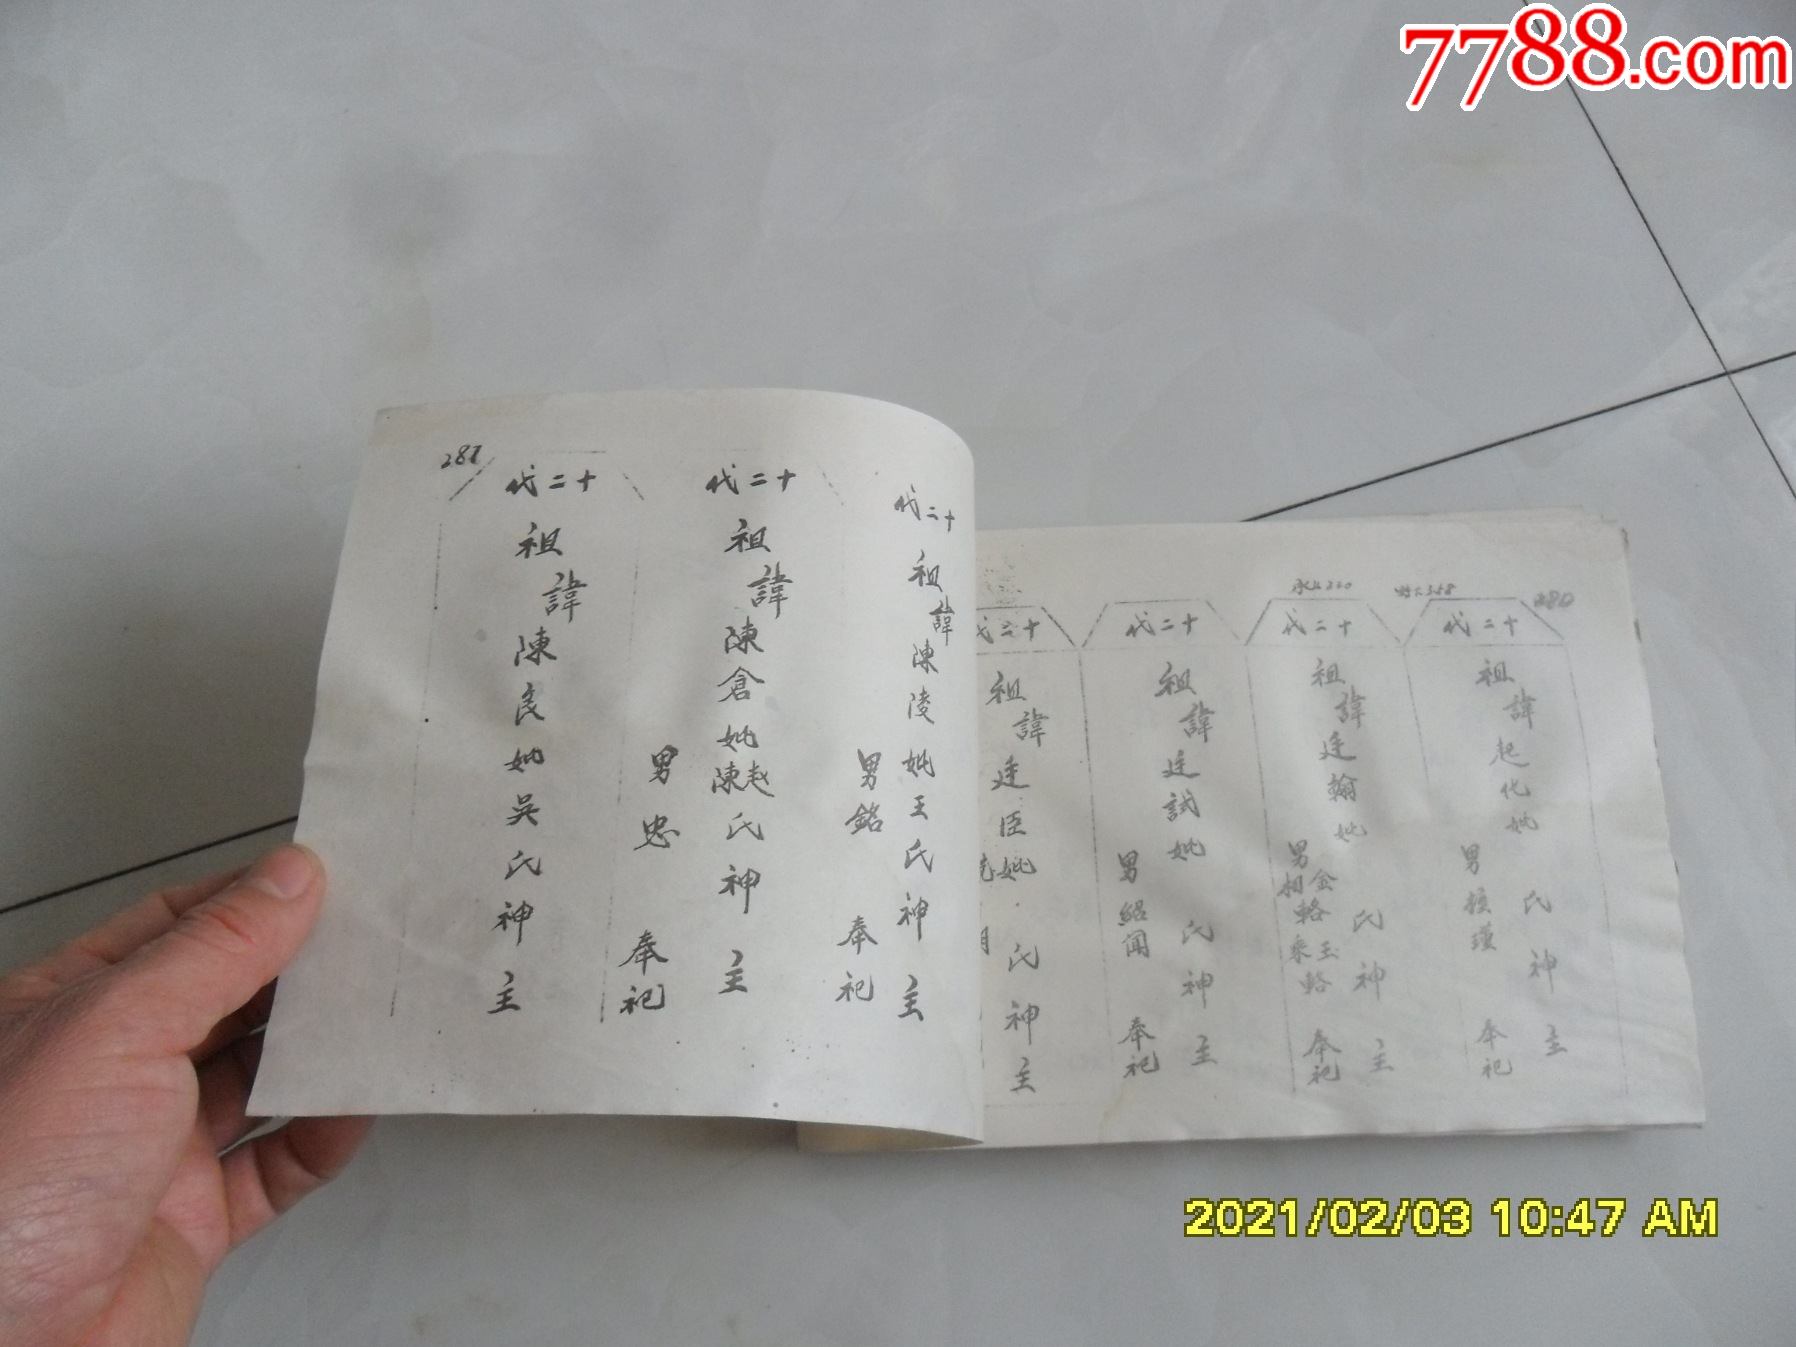 7788.com
280
十二代
祖諱起化妣氏神主
奉祀
十二代
祖諱廷翰妣氏神主
奉祀
十二代
祖諱廷試妣氏神主
男紹聞奉祀
十二代
祖諱廷臣妣氏神主
十二代
祖諱陳陵妣王氏神主
男銘奉祀
十二代
祖諱陳倉妣陳趙氏神主
男忠奉祀
281
十二代
祖諱陳良妣吳氏神主
2021/02/03 10:47 AM